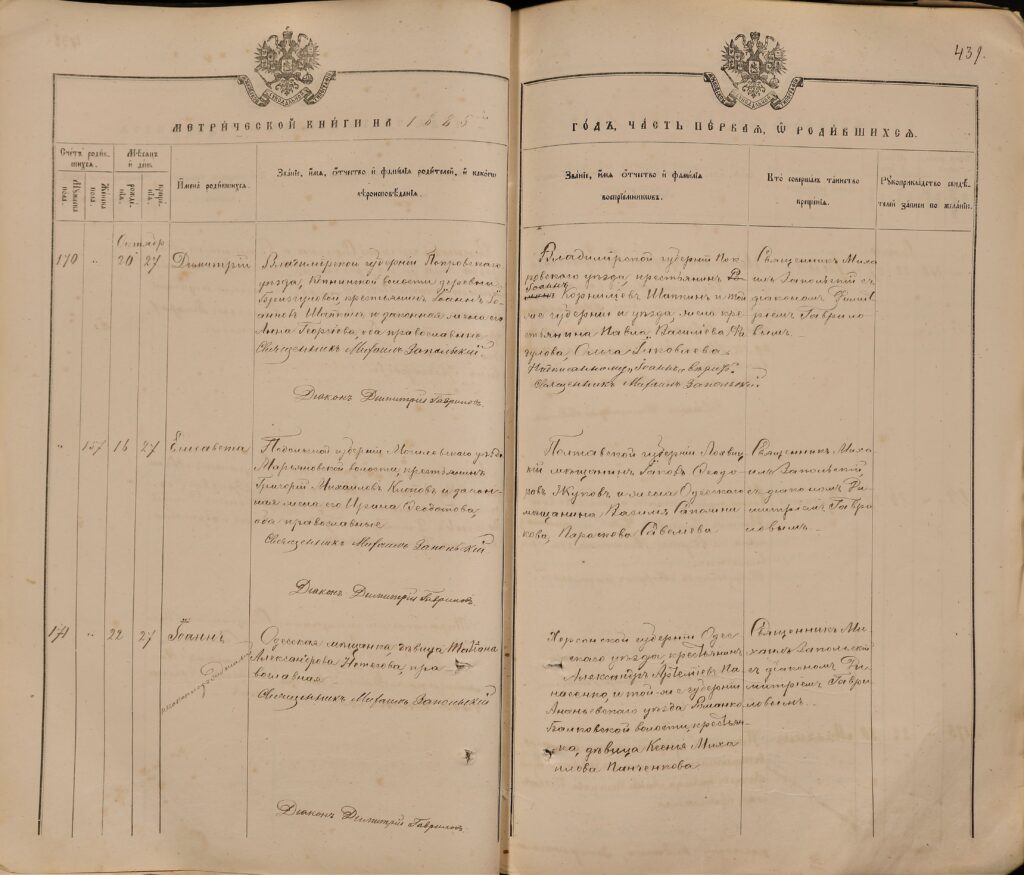 439.
МЕТРИ́ЧЕСКОЙ КНИ́ГИ НА 1885
ГО́ДЪ, ЧА́СТЬ ПЕ́РВАЯ, Ѡ РОДИ́ВШИХСЯ.
Счетъ роди́вшихся.
Мѣсяцъ и день.
Имена̀ роди́вшихся.
Зва́нїе, и́мя, ѻ́тчество и фами́лїя роди́телей, и како́гѡ вѣроисповѣ́данїя.
Зва́нїе, и́мя, ѻ́тчество и фами́лїя воспрїе́мниковъ.
Кто̀ соверша́лъ та́инство креще́нїя.
Рꙋкоприкла́дство свидѣ́телей за́писи по жела́нїю.
Мꙋжеска пола.
Женска пола.
рожде́нїя.
креще́нїя.
Октябр
170 " 20 27 Димитрій
Владимірской губерніи Покровскаго
уѣзда, волости деревни
крестьянинъ Іоаннъ Іо-
анновъ Шапкинъ и законная жена его
Анна Георгіева, оба православные.
Священникъ Михаилъ Запольскій
Діаконъ Димитрій Гавриловъ.
Владимірской губерніи Пок-
ровскаго уѣзда, крестьянинъ
Іоаннъ
Корниліевъ Шапкинъ и той
же губерніи и уѣзда, жена кре-
стьянина Павла Василіева
Ольга Іаковлева.
Надписанному „Іоаннъ" вѣрить.
Священникъ Михаилъ Запольскій
Священникъ Миха-
илъ Запольскій съ
діакономъ Димит-
ріемъ Гаврило-
вымъ.
" 157 16 27 Елисавета
Подольской губерніи Могилевскаго уѣзда
Марьяновской волости, крестьянинъ
Григорій Михаиловъ и закон-
ная жена его Ирина Ѳеодотова,
оба православные
Священникъ Михаилъ Запольскій
Діаконъ Димитрій Гавриловъ.
Полтавской губерніи Лохвиц-
кій мѣщанинъ Іаковъ Ѳеодо-
ровъ Жуковъ, и жена Одесскаго
мѣщанина Василія
Параскева Савеліева
Священникъ Миха-
илъ Запольскій
съ діакономъ Ди-
митріемъ Гаври-
ловымъ.
171 " 22 27 Іоаннъ
незаконнорожденный
Одесская мѣщанка, дѣвица Татіана
Александрова пра-
вославная.
Священникъ Михаилъ Запольскій
Діаконъ Димитрій Гавриловъ.
Херсонской губерніи Одес-
скаго уѣзда, крестьянинъ
Александръ Артеміевъ Па-
насенко, и той-же губерніи
Ананьевскаго уѣзда Романко-
Балковской волости, крестьян-
ка, дѣвица Ксенія Миха-
илова Панченкова
Священникъ Ми-
хаилъ Запольскій
съ діакономъ Ди-
митріемъ Гаври-
ловымъ.